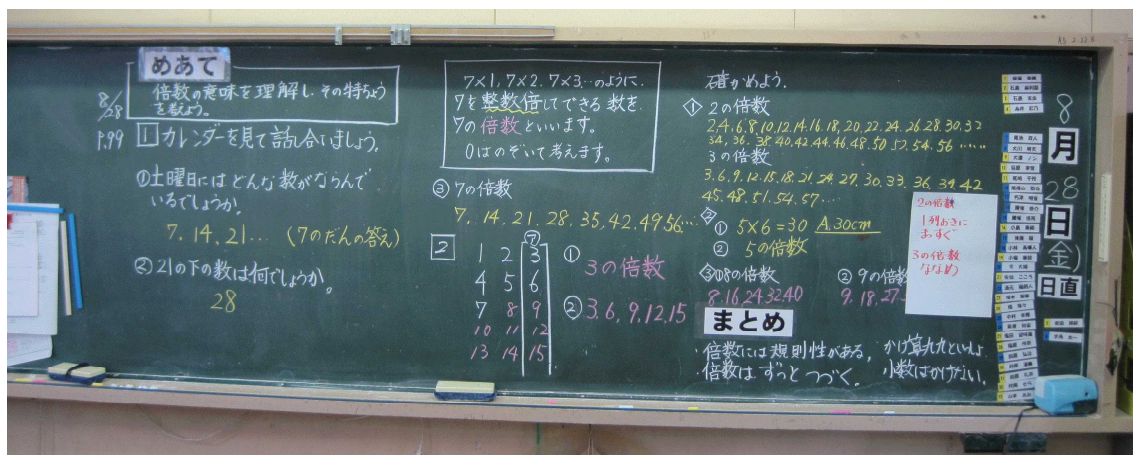 めあて
倍数の意味を理解し、その特ちょう
を考えよう。
8/28
P.99
1 カレンダーを見て話し合いましょう。
①土曜日にはどんな数がならんで
いるでしょうか。
7. 14. 21… (7のだんの答え)
②21の下の数は何でしょうか。
28
7×1, 7×2, 7×3…のように、
7を整数倍してできる数を、
7の倍数といいます。
0はのぞいて考えます。
③7の倍数
7. 14. 21. 28. 35. 42. 49. 56…
2
㋐
1 2 3
4 5 6
7 8 9
10 11 12
13 14 15
① 3の倍数
② 3. 6. 9. 12. 15
確かめよう。
① 2の倍数
2.4.6.8.10.12.14.16.18.20.22.24.26.28.30.32
34.36.38.40.42.44.46.48.50.52.54.56……
3の倍数
3.6.9.12.15.18.21.24.27.30.33.36.39.42
45.48.51.54.57…
②
① 5×6=30 A.30cm
② 5の倍数
③①8の倍数
8.16.24.32.40
② 9の倍数
9.18.27.
2の倍数
1列おきに
まっすぐ
3の倍数
ななめ
まとめ
・倍数には規則性がある。かけ算九九といっしょ
・倍数はずっとつづく。小数はかけない。
8
月
28
日
(金)
日直